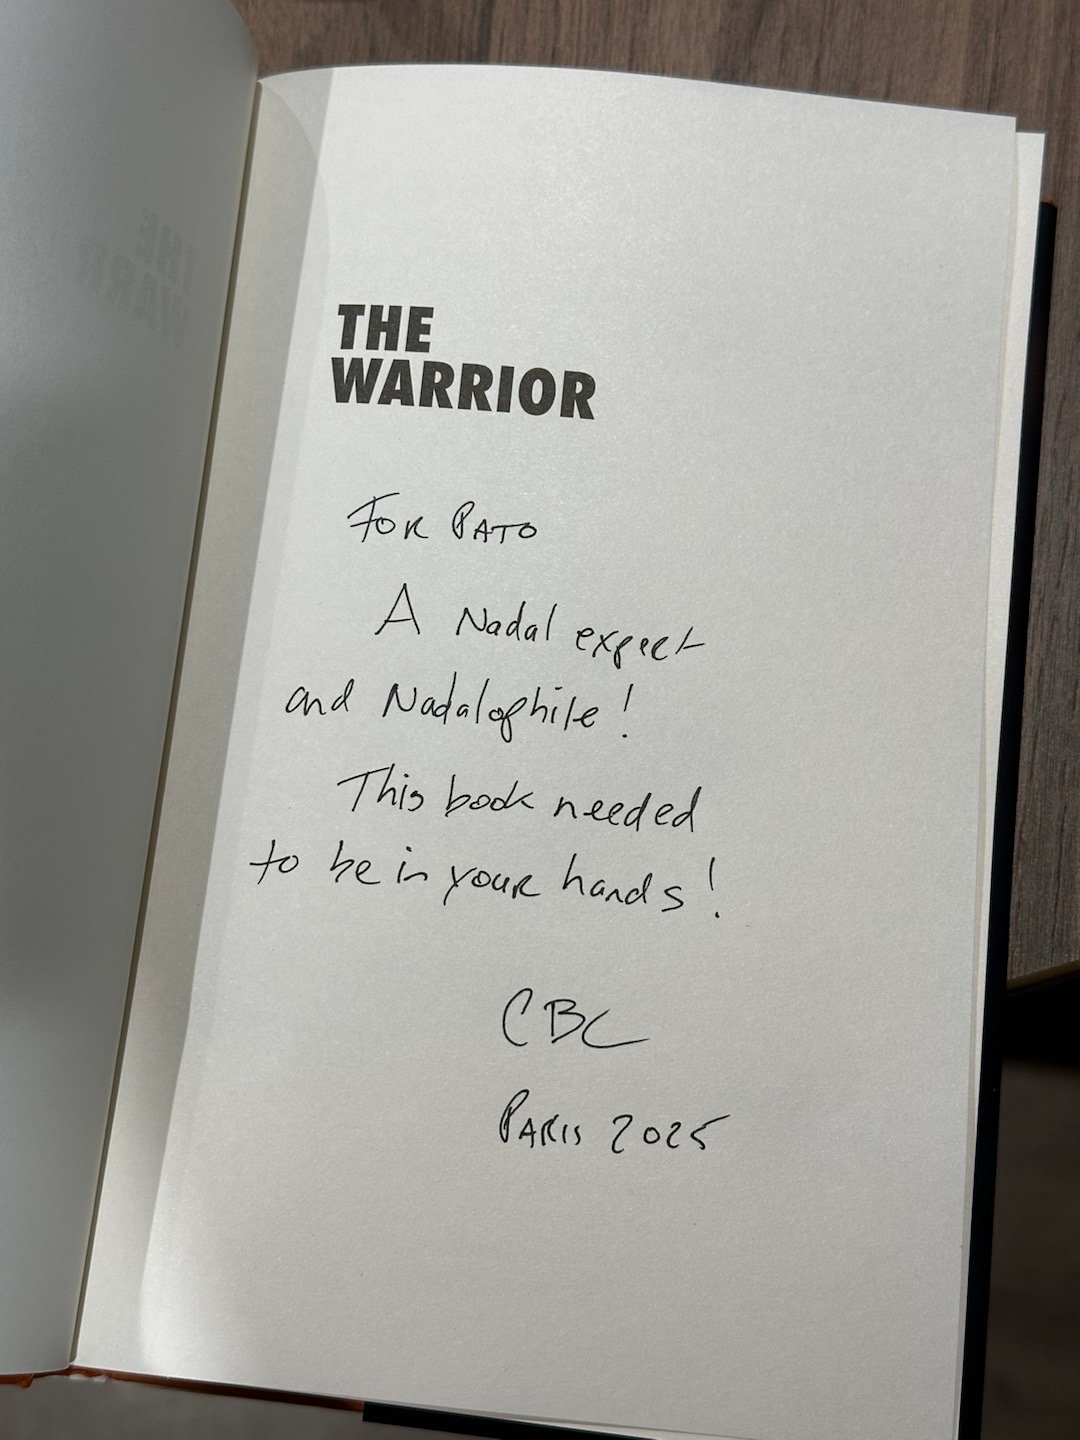 THE
WARRIOR
FOR PATO
A Nadal expert
and Nadalophile!
This book needed
to be in your hands!
CBC
PARIS 2025